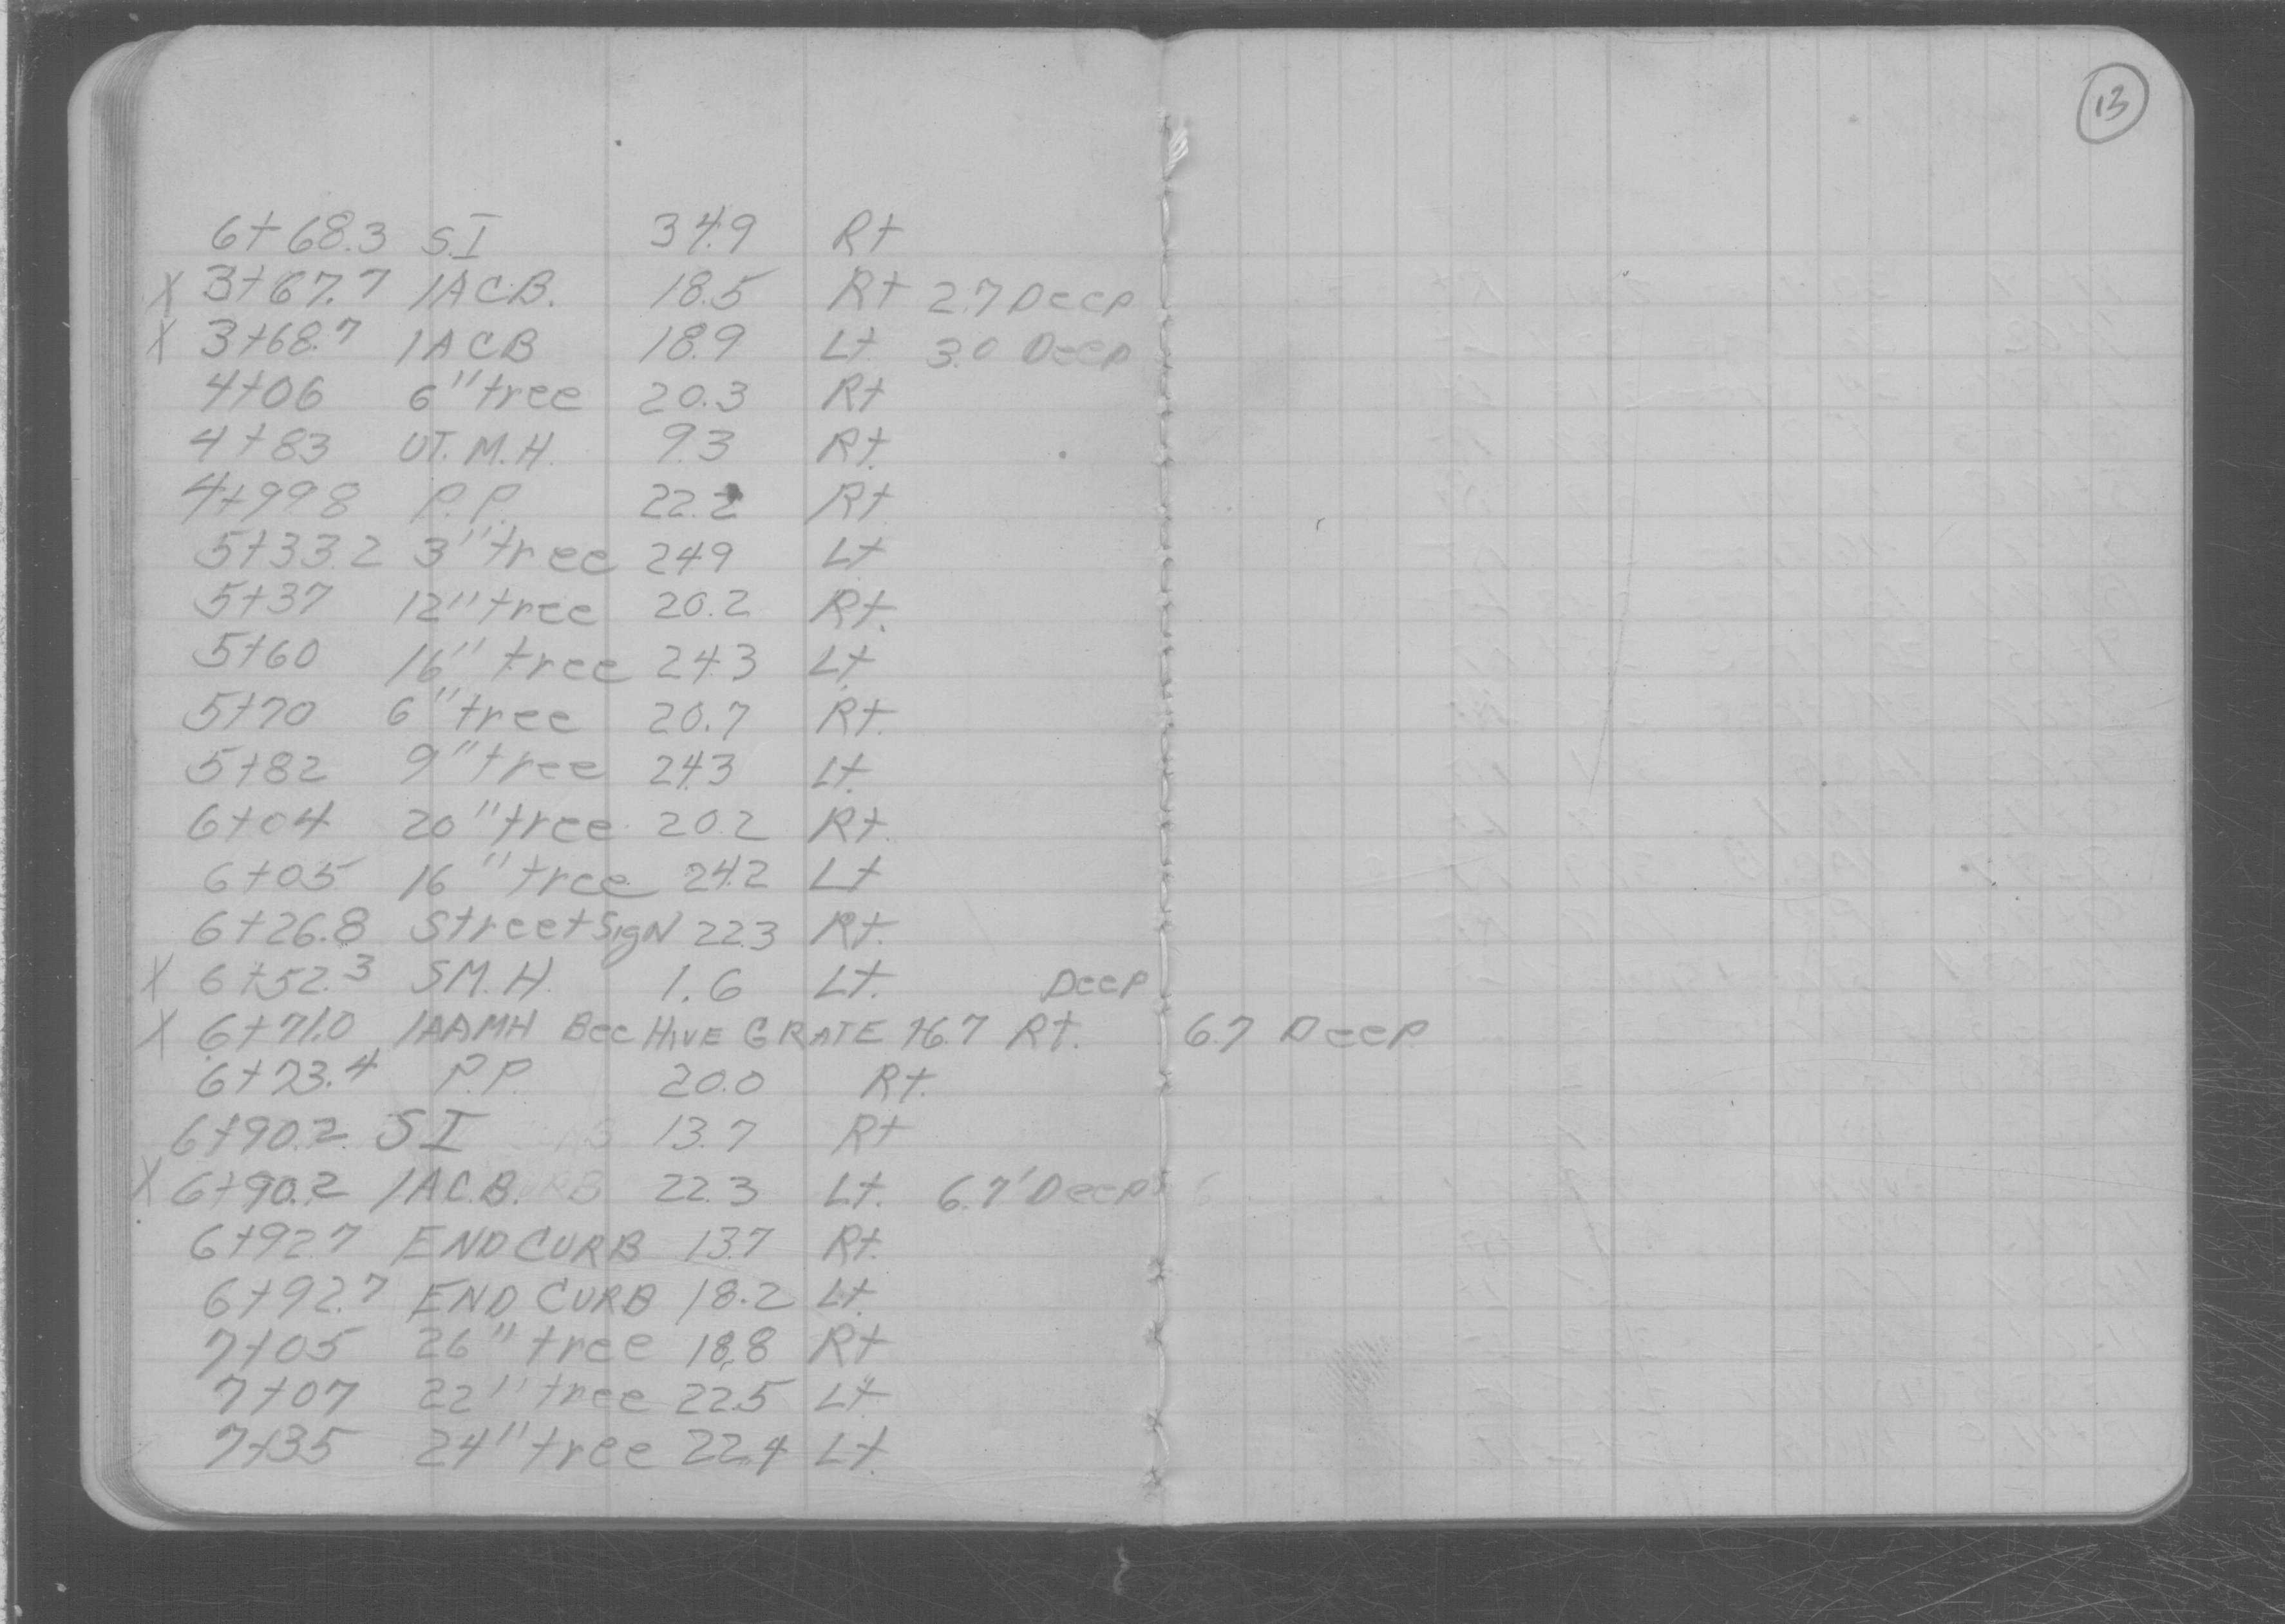 13
6+68.3 S.I 34.9 Rt
X 3+67.7 1A C.B. 18.5 Rt 2.7 Deep
X 3+68.7 1A CB 18.9 Lt 3.0 Deep
4+06 6" tree 20.3 Rt
4+83 UT. M.H. 9.3 Rt.
4+99.8 P.P. 22.2 Rt
5+33.2 3" tree 24.9 Lt
5+37 12" tree 20.2 Rt.
5+60 16" tree 24.3 Lt.
5+70 6" tree 20.7 Rt.
5+82 9" tree 24.3 Lt.
6+04 20" tree 20.2 Rt.
6+05 16" tree 24.2 Lt
6+26.8 Street Sign 22.3 Rt.
X 6+52.3 S.M.H. 1.6 Lt. Deep
X 6+71.0 1AAMH Bee HIVE GRATE 16.7 Rt. 6.7 Deep
6+73.4 P.P. 20.0 Rt.
6+90.2 S I 13.7 Rt
X 6+90.2 1A C.B. 22.3 Lt. 6.7' Deep
6+92.7 END CURB 13.7 Rt.
6+92.7 END CURB 18.2 Lt.
7+05 26" tree 18.8 Rt
7+07 22" tree 22.5 Lt.
7+35 24" tree 22.4 Lt.